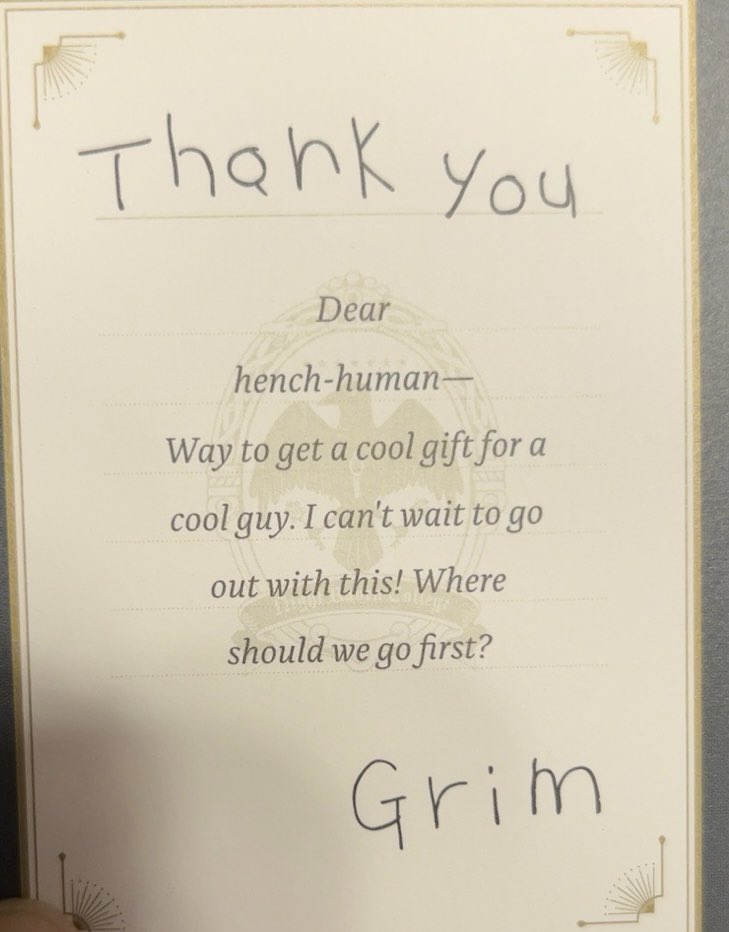 Thank you
Dear
hench-human—
Way to get a cool gift for a
cool guy. I can't wait to go
out with this! Where
should we go first?
Grim